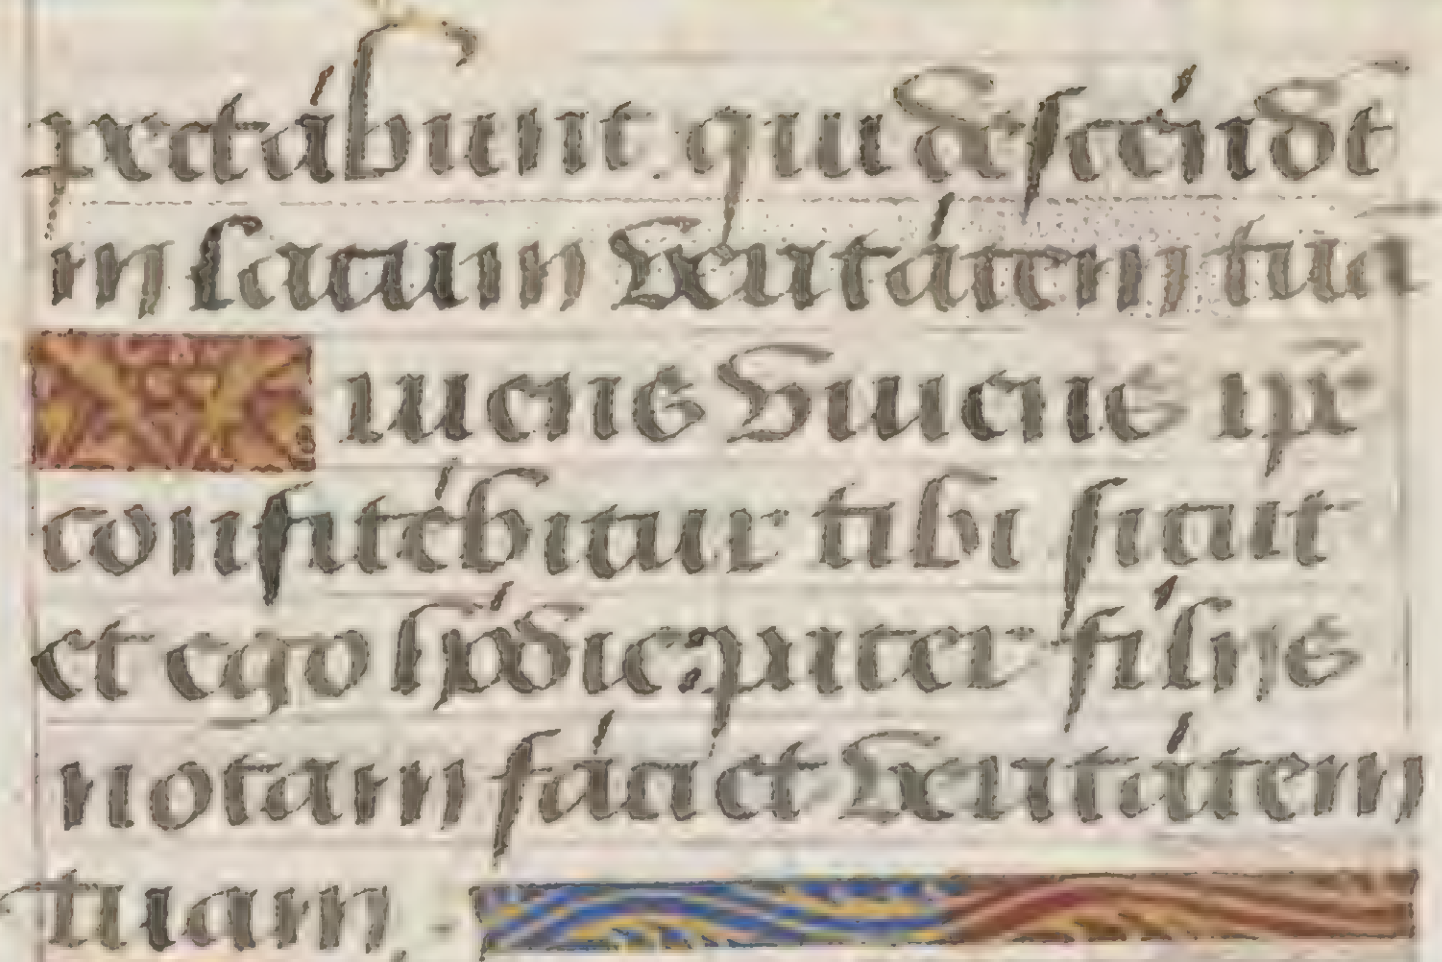 pectábunt. qui descéndēt
in lacum veritátem tuā
Viuens viuens ip̄e
confitébitur tibi sicut
et ego hódie: pater fílijs
notam fáciet veritátem
tuam.